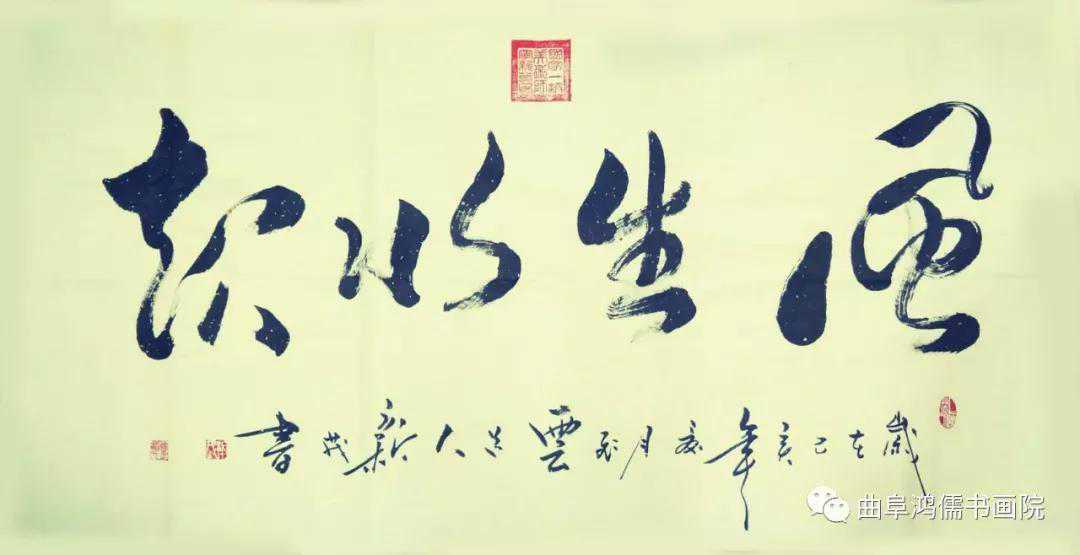 風生水起
歲在己亥年夏月雲人新茂書
曲阜鸿儒书画院